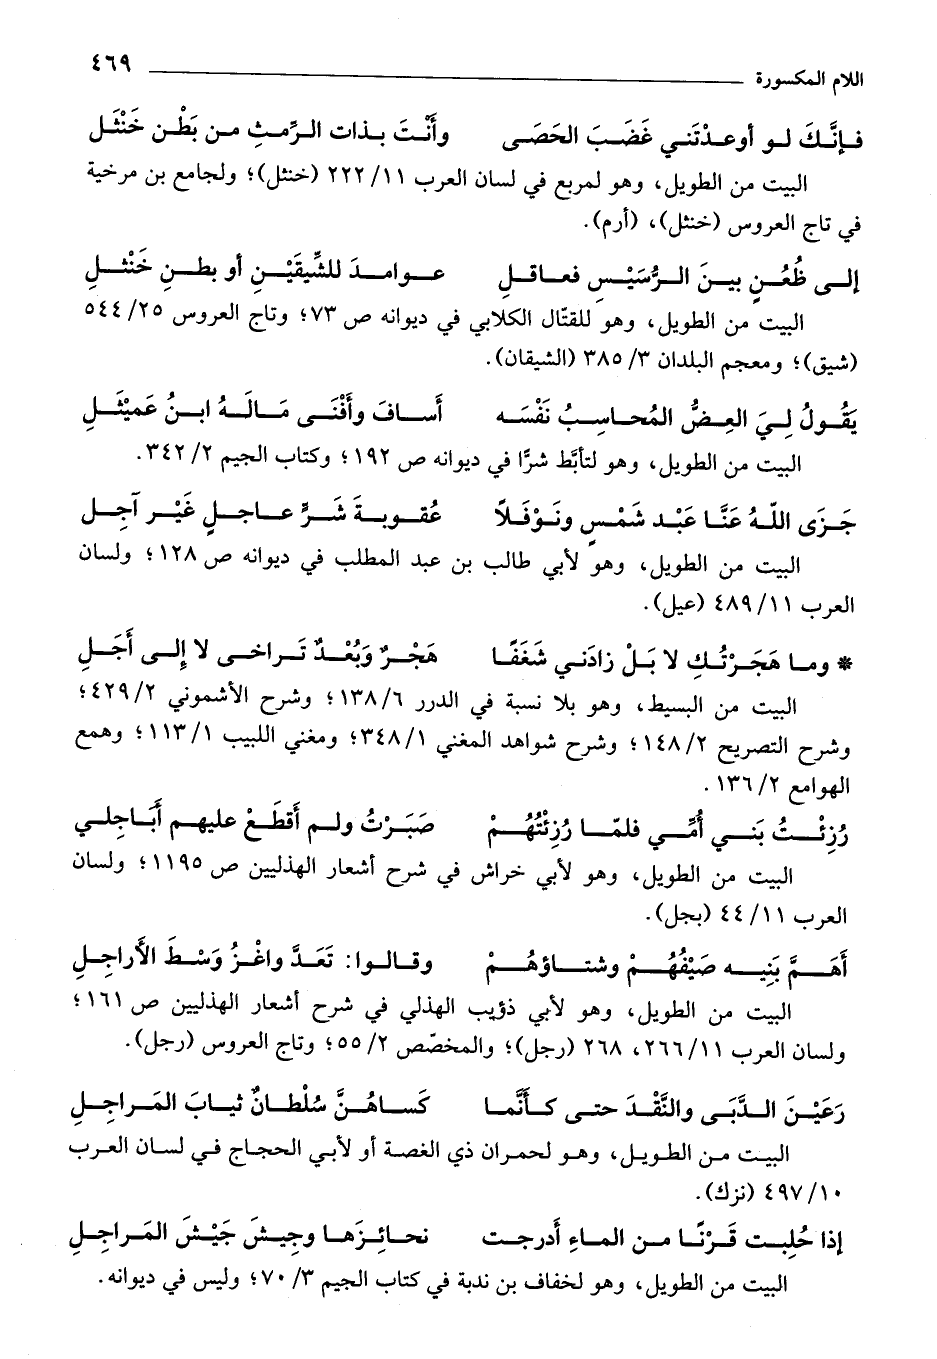 اللام المكسورة ٤٦٩
فإنَّكَ لو أوعدْتَني غَضَبَ الحَصَى وأنْتَ بذات الرِّمثِ من بَطْنِ خَنْثَلِ
البيت من الطويل، وهو لمربع في لسان العرب ١١/ ٢٢٢ (خنثل)؛ ولجامع بن مرخية
في تاج العروس (خنثل)، (أرم).
إلى ظُعُنٍ بينَ الرُّسَيْسِ فعاقلِ عوامدَ للشِّيقَيْنِ أو بطنِ خَنْثلِ
البيت من الطويل، وهو للقتّال الكلابي في ديوانه ص ٧٣؛ وتاج العروس ٢٥/ ٥٤٤
(شيق)؛ ومعجم البلدان ٣/ ٣٨٥ (الشيقان).
يَقُولُ لِيَ العِضُّ المُحاسِبُ نَفْسَه أَسافَ وأَفْنَى مَالَهُ ابنُ عَمِيْثَلِ
البيت من الطويل، وهو لتأبَّط شرًّا في ديوانه ص ١٩٢؛ وكتاب الجيم ٢/ ٣٤٢.
جَزَى اللّهُ عَنَّا عَبْدَ شَمْسٍ ونَوْفَلاً عُقوبةَ شَرٍّ عاجلٍ غَيْرِ آجِلِ
البيت من الطويل، وهو لأبي طالب بن عبد المطلب في ديوانه ص ١٢٨؛ ولسان
العرب ١١/ ٤٨٩ (عيل).
* وما هَجَرْتُكِ لا بَلْ زادَني شَغَفًا هَجْرٌ وَبُعْدٌ تَراخى لا إِلى أَجَلِ
البيت من البسيط، وهو بلا نسبة في الدرر ٦/ ١٣٨؛ وشرح الأشموني ٢/ ٤٢٩؛
وشرح التصريح ٢/ ١٤٨؛ وشرح شواهد المغني ١/ ٣٤٨؛ ومغني اللبيب ١/ ١١٣؛ وهمع
الهوامع ٢/ ١٣٦.
رُزِئْتُ بَني أُمِّي فلمّا رُزِئْتُهُمْ صَبَرْتُ ولم أَقطَعْ عليهم أَبَاجِلي
البيت من الطويل، وهو لأبي خراش في شرح أشعار الهذليين ص ١١٩٥؛ ولسان
العرب ١١/ ٤٤ (بجل).
أَهَمَّ بَنِيه صَيْفُهُمْ وشتاؤهُمْ وقالوا: تَعَدَّ واغْزُ وَسْطَ الأَراجِلِ
البيت من الطويل، وهو لأبي ذؤيب الهذلي في شرح أشعار الهذليين ص ١٦١؛
ولسان العرب ١١/ ٢٦٦، ٢٦٨ (رجل)؛ والمخصّص ٢/ ٥٥؛ وتاج العروس (رجل).
رَعَيْنَ الدَّبَى والنَّقْدَ حتى كأنَّما كَساهُنَّ سُلْطانٌ ثيابَ المَراجِلِ
البيت من الطويل، وهو لحمران ذي الغصة أو لأبي الحجاج في لسان العرب
١٠/ ٤٩٧ (نزك).
إذا حُلِبت قَرْنًا من الماءِ أدرجت نحائِزَها وجِيشَ جَيْشَ المَراجِلِ
البيت من الطويل، وهو لخفاف بن ندبة في كتاب الجيم ٣/ ٧٠؛ وليس في ديوانه.